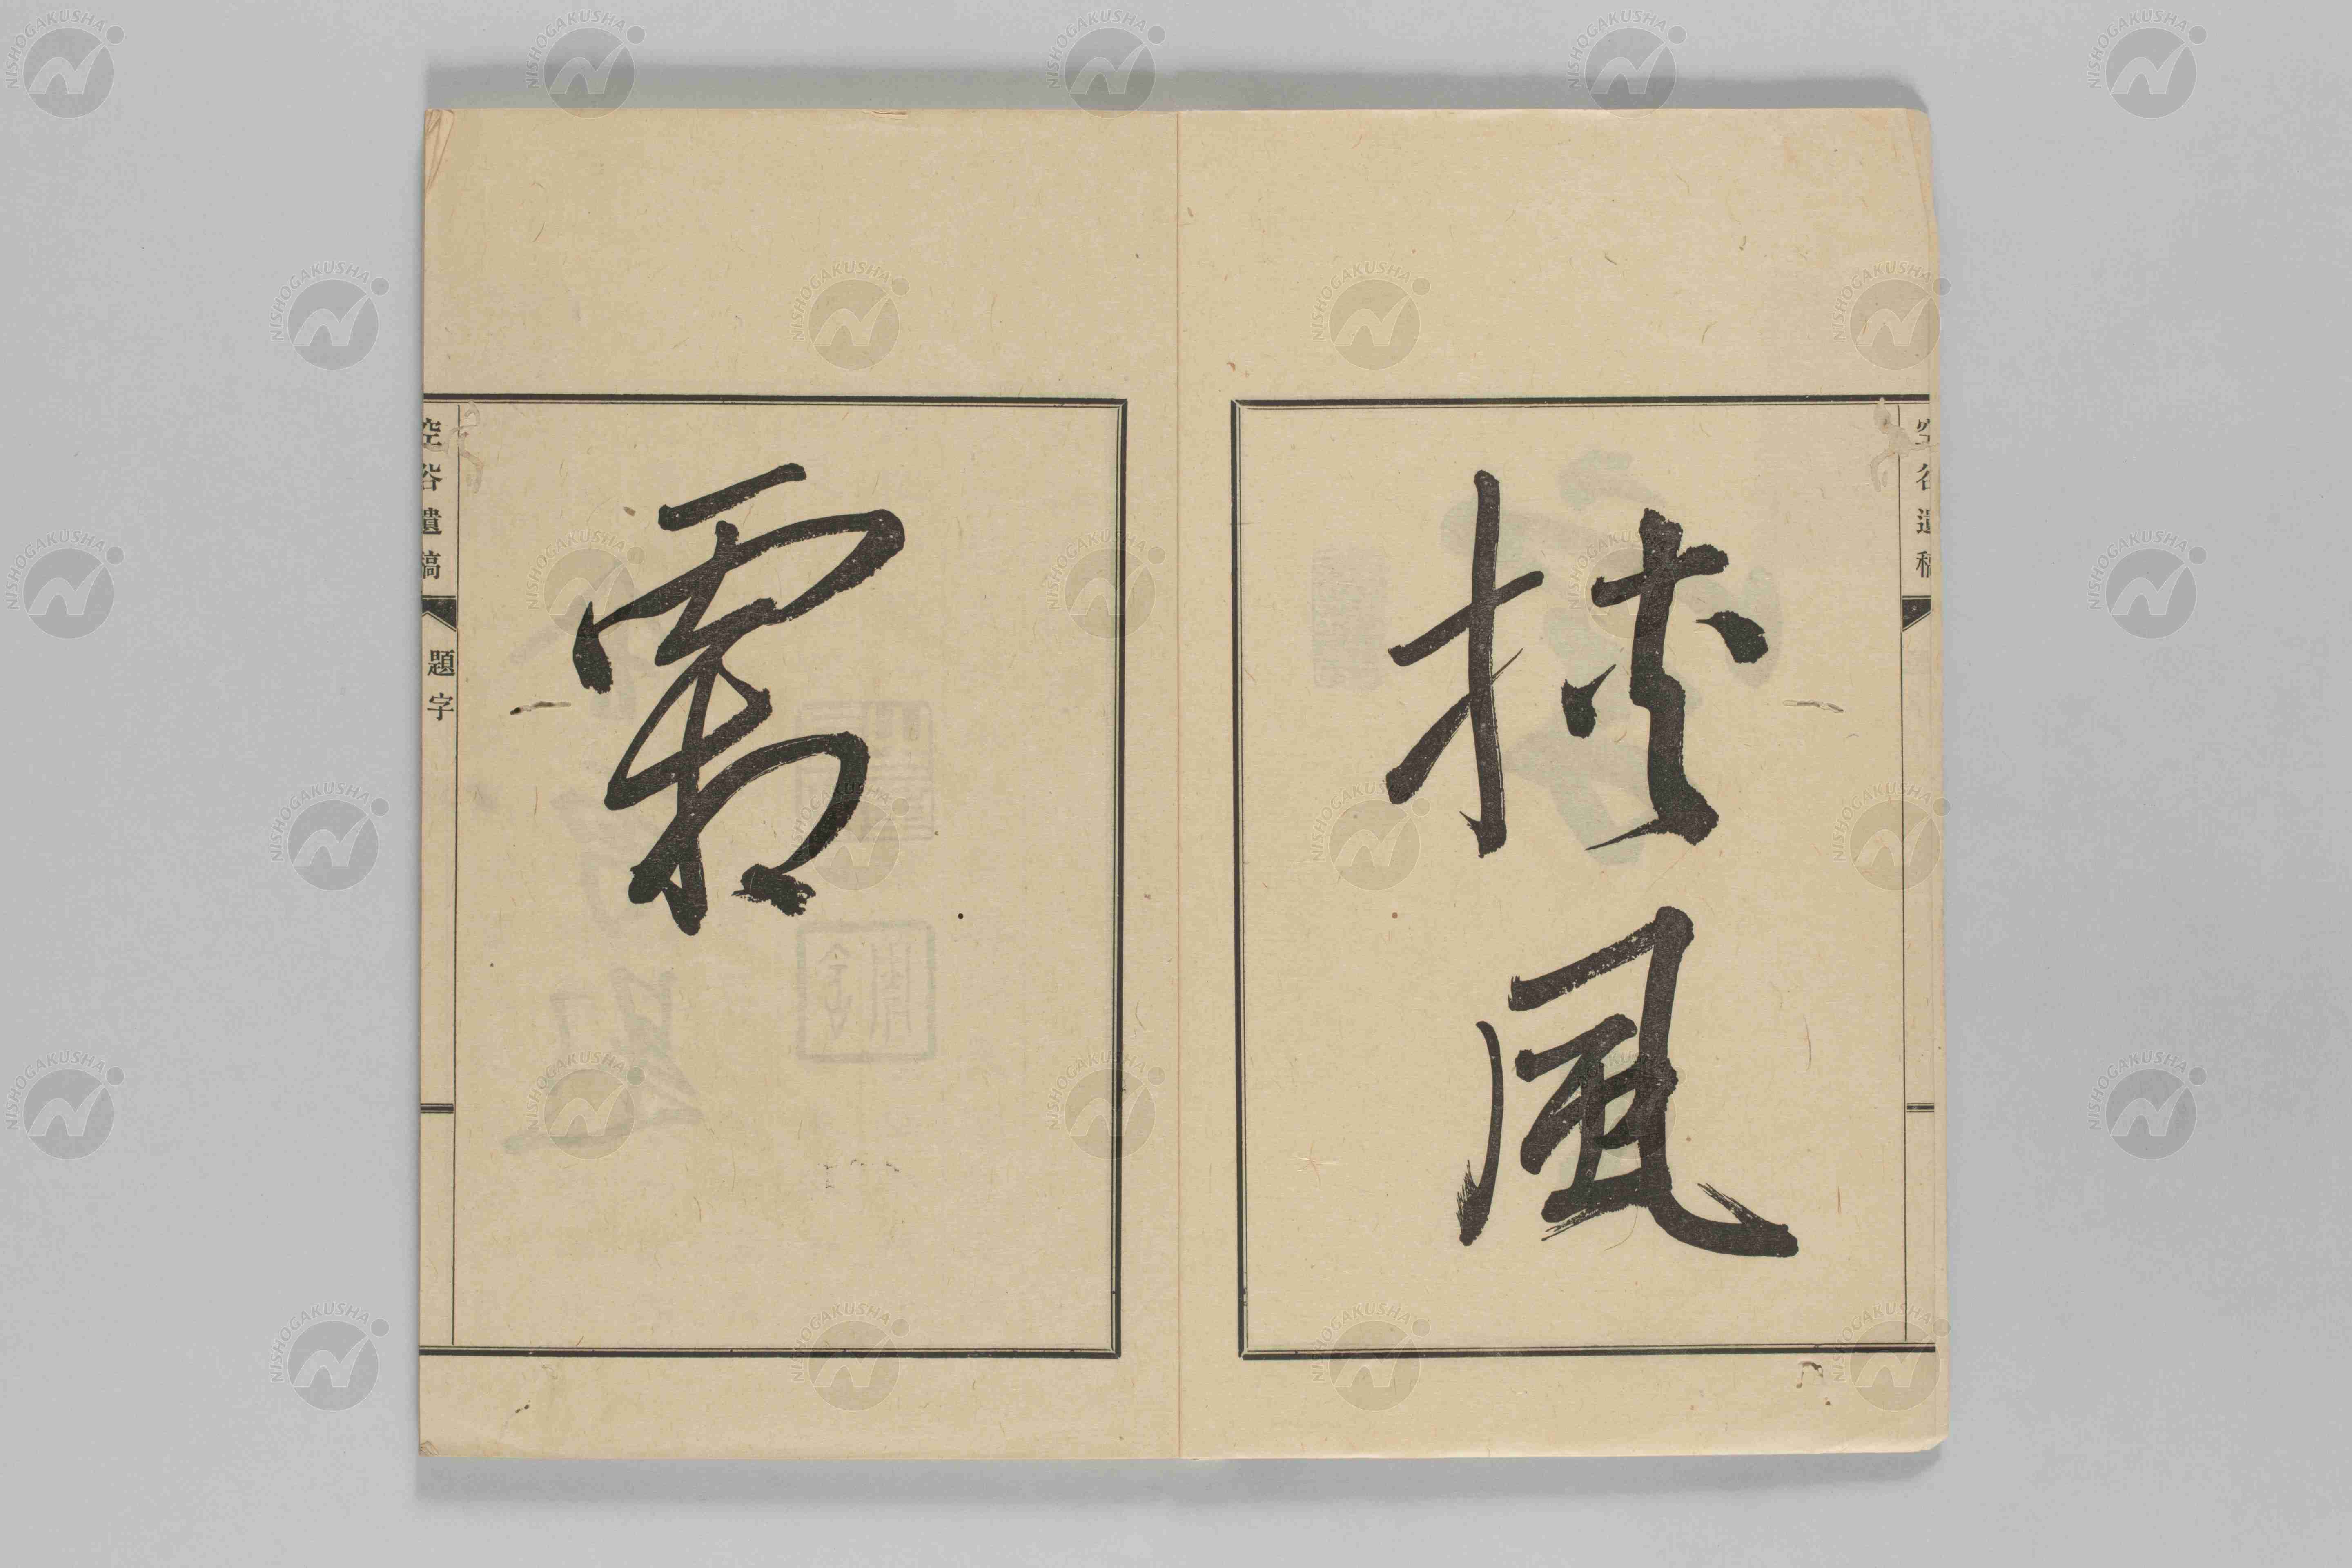 空谷遺稿
挾風
霜
空谷遺稿
題字
NISHOGAKUSHA